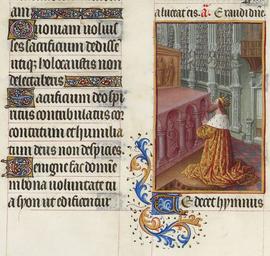 am
Quoniam voluis
ses sacrificium dedissem
utiq; holocaustis non
delectaberis
Sacrificium deo spi
ritus contribulatus cor
contritum et humilia
tum deus non despicies
Benigne fac domine
in bona voluntate tu
a syon ut edificentur
a luceat eis. a. Exaudi dne.
Te decet hymnus